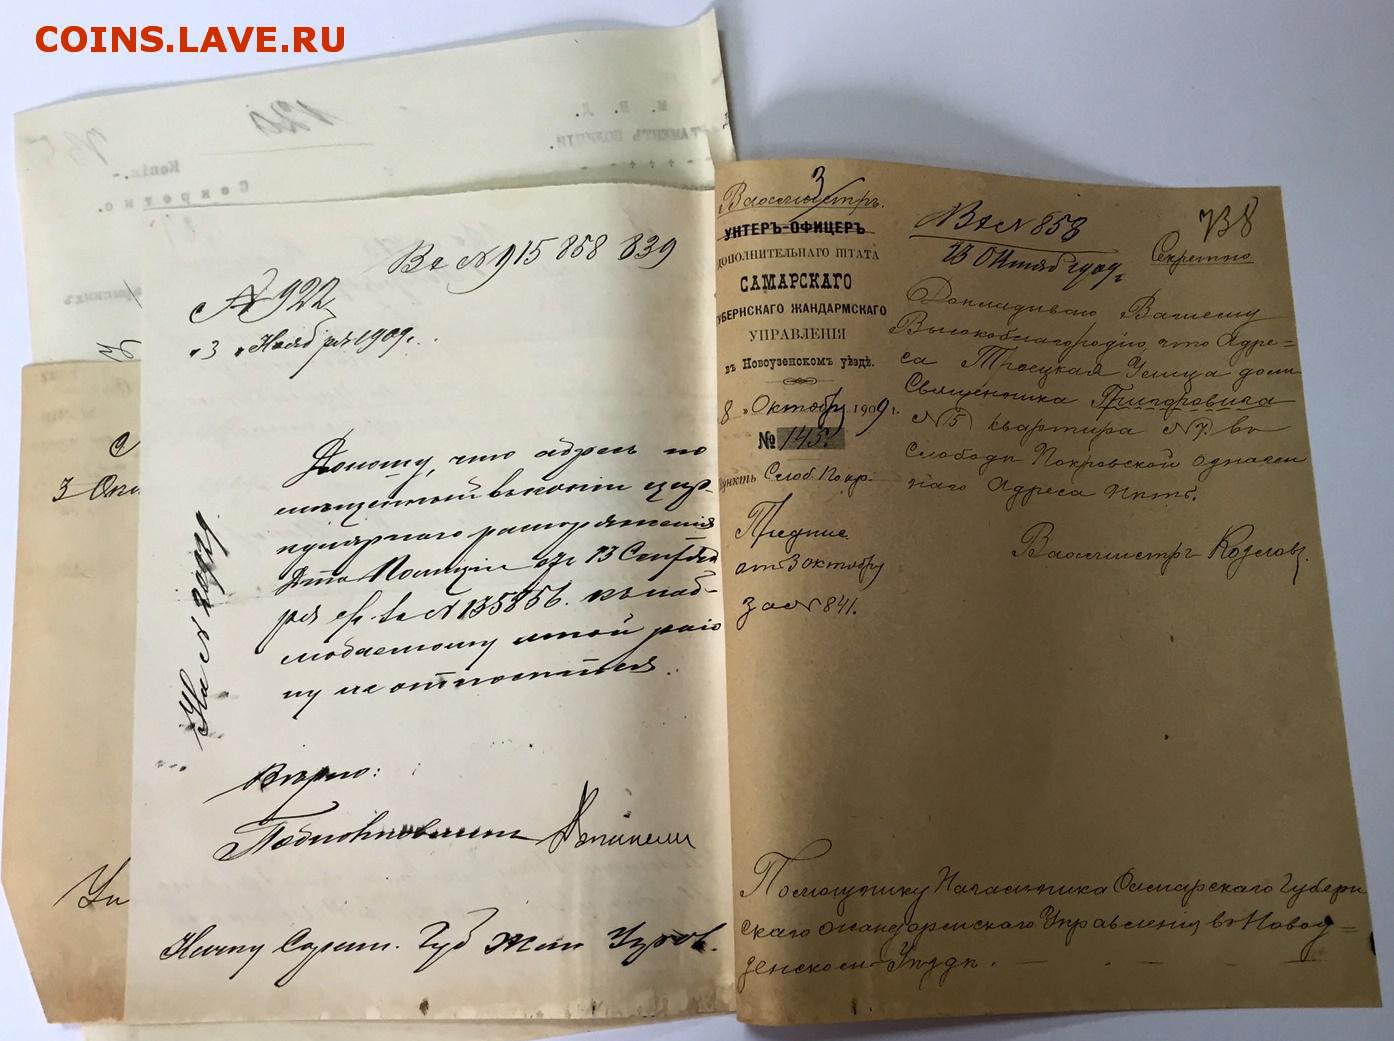 COINS.LAVE.RU
120
М. В. Д.
ДЕПАРТАМЕНТЪ ПОЛИЦІИ
Копія.
Секретно.
3 Окт
Вх № 915 858 839
№ 922
"3" Ноября 1909 г.
Доношу, что адресъ по
мѣщенный въ копіи цир-
кулярнаго распоряженія
Д-та Полиціи отъ 13 Сентяб
ря с/г. за № 135856. къ наб-
людаемому мной раіо
ну не относится.
На №
Вѣрно:
Подполковникъ
Нач-ку Сарат. Губ Жан Управ.
3
Вахмистръ.
УНТЕРЪ-ОФИЦЕРЪ
ДОПОЛНИТЕЛЬНАГО ШТАТА
САМАРСКАГО
ГУБЕРНСКАГО ЖАНДАРМСКАГО
УПРАВЛЕНІЯ
въ Новоузенскомъ уѣздѣ.
8 " Октября 1909 г.
№ 145.
Пунктъ Слоб. Покр.
Предпис.
от 3 октября
за № 841.
Вх № 858
13 Октяб 1909 г
738
Секретно
Докладываю Вашему
Высокоблагородію, что Адре=
са Троецкая Улица домъ
Священника Григоровича
№ 5 квартира № 7. въ
Слободѣ Покровской означен
наго Адреса нѣтъ.
Вахмистръ Козловъ.
Помощнику Начальника Самарскаго Губерн
скаго Жандармскаго Управленія въ Новоу=
зенскомъ Уѣздѣ.